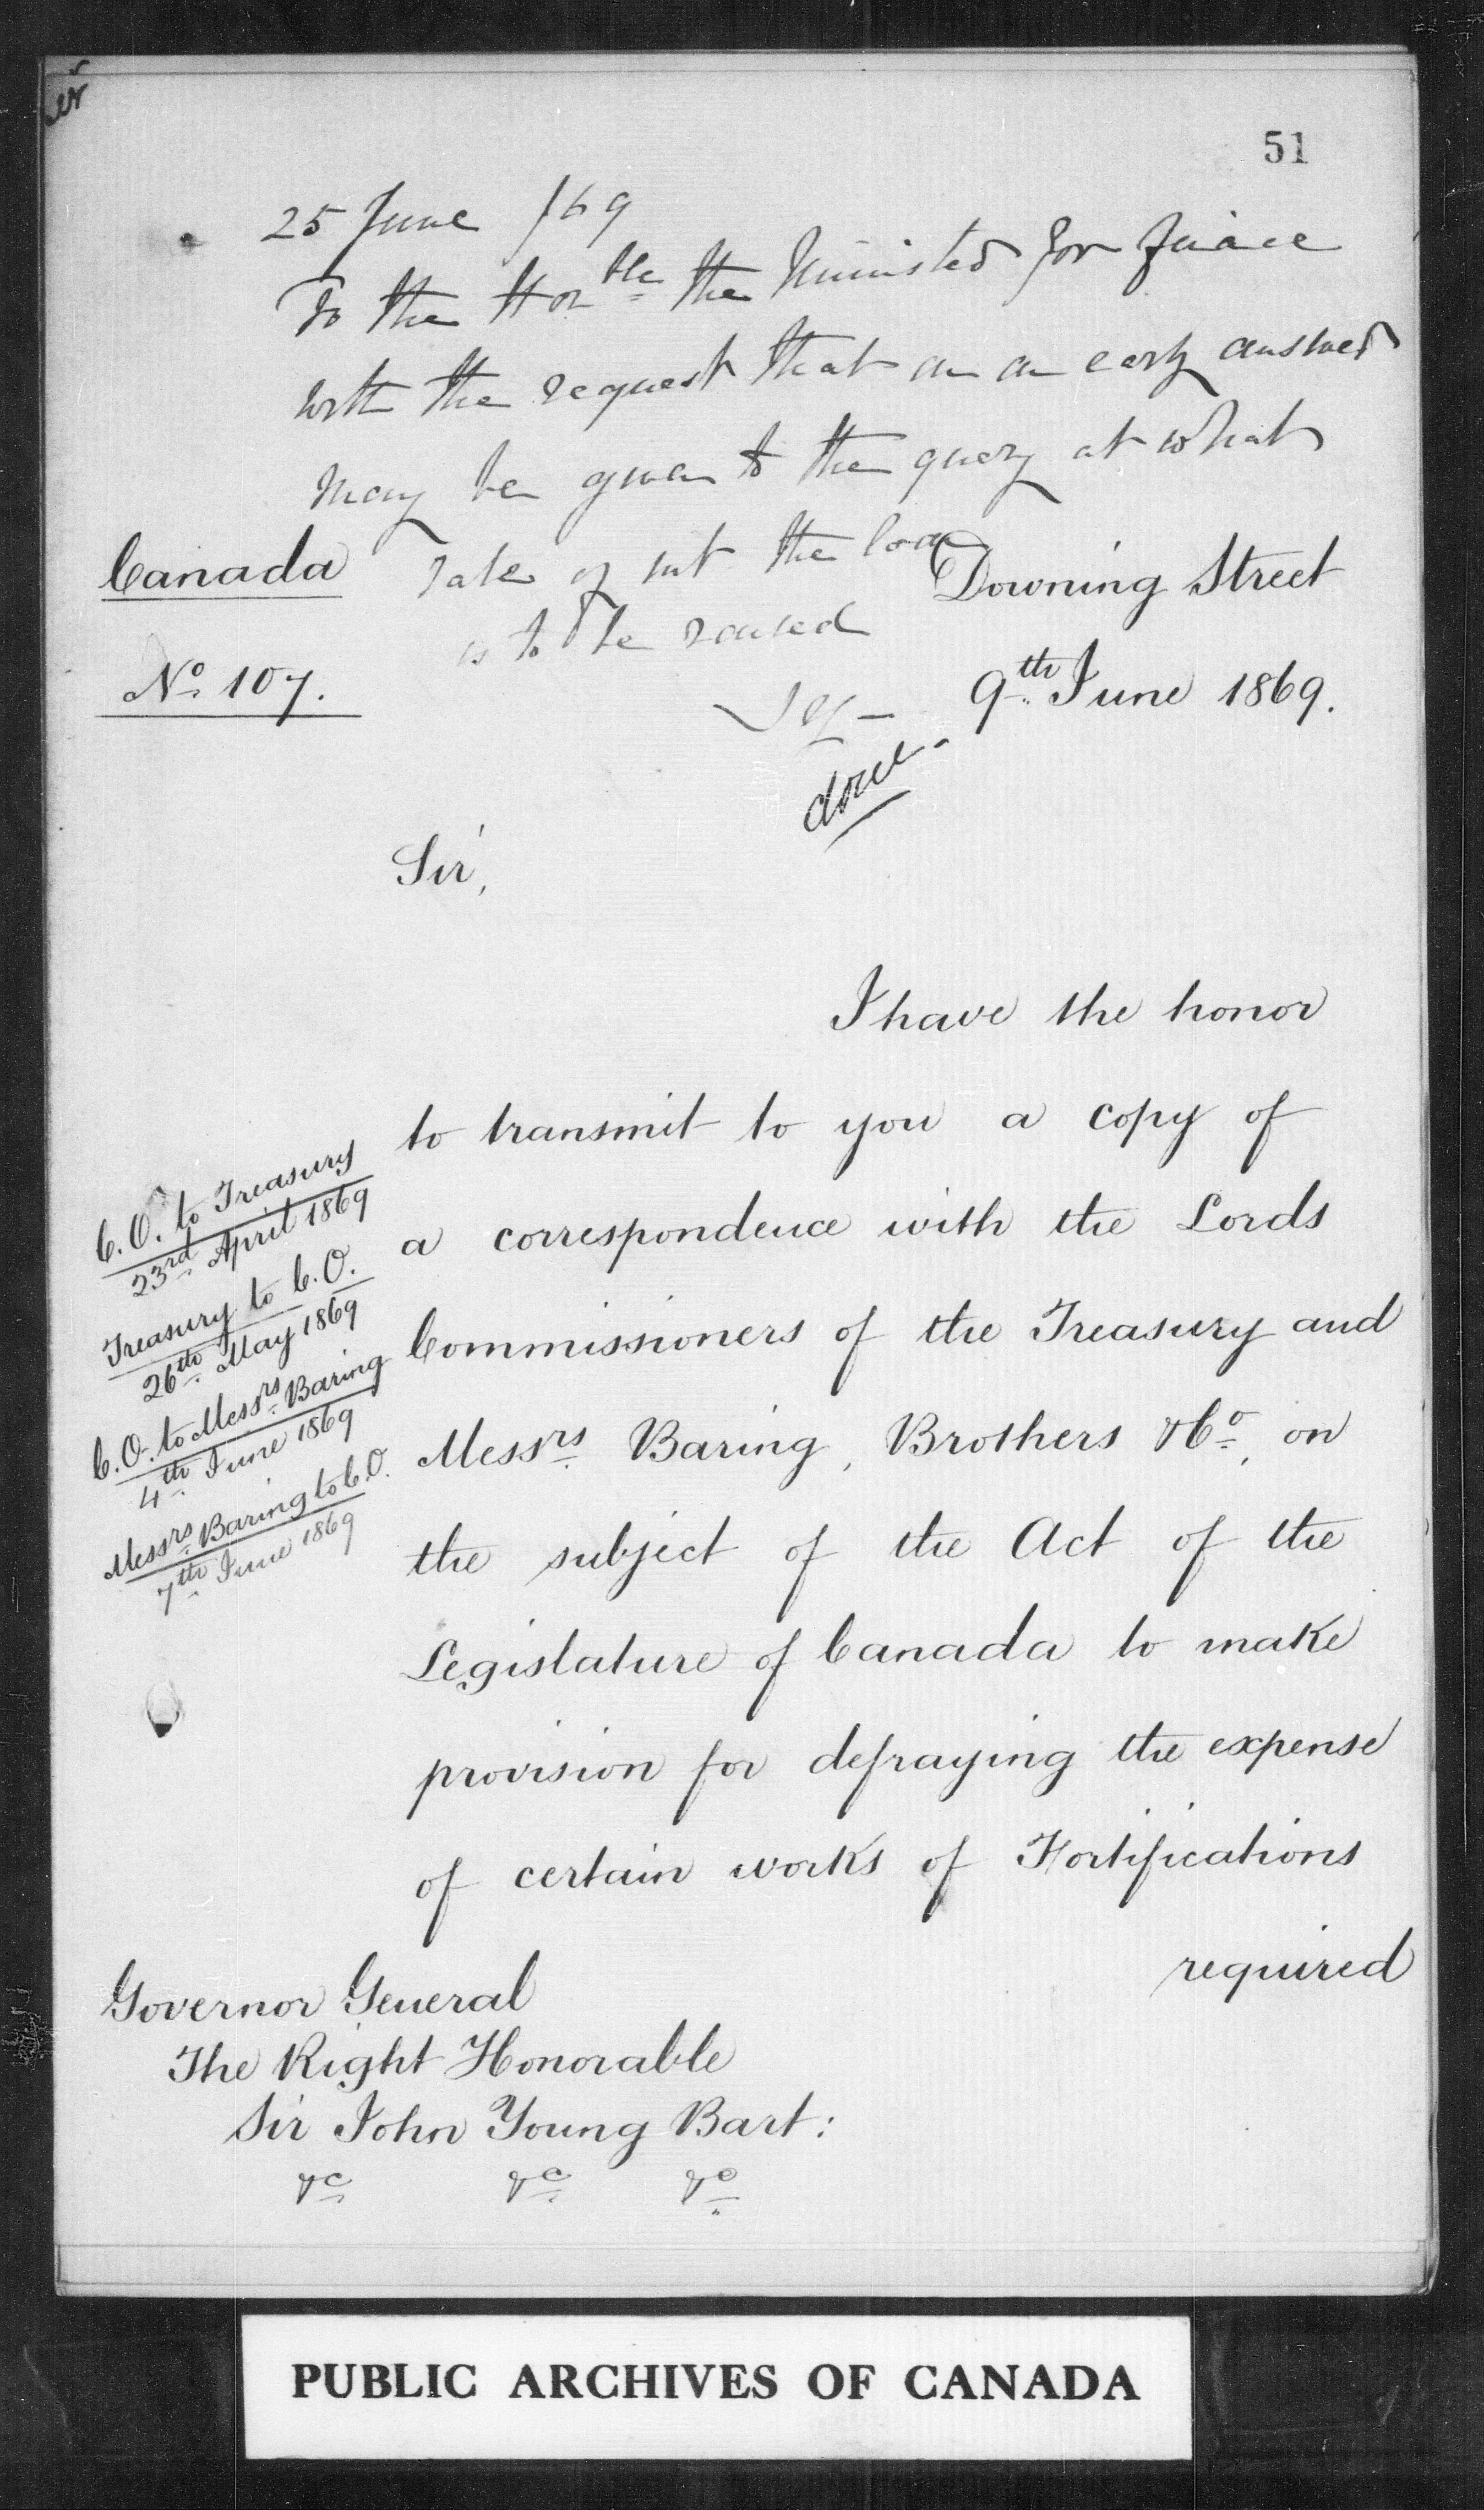 51
25 June /69
To the Honble the Minister for Finance
with the request that an an early answer
may be given to the query at what
rate of int the loan
is to be raised
done.
Canada
No. 107.
Downing Street
9th June 1869.
Sir,
I have the honor
to transmit to you a copy of
a correspondence with the Lords
Commissioners of the Treasury and
Messrs Baring, Brothers & Co, on
the subject of the Act of the
Legislature of Canada to make
provision for defraying the expense
of certain works of Fortifications
required
C.O. to Treasury
23rd April 1869
Treasury to C.O.
26th May 1869
C.O. to Messrs Baring
4th June 1869
Messrs Baring to C.O.
7th June 1869
Governor General
The Right Honorable
Sir John Young Bart:
&c &c &c
PUBLIC ARCHIVES OF CANADA